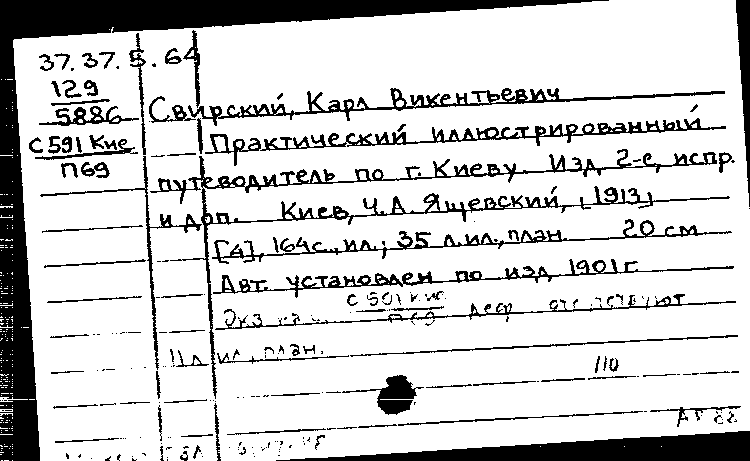 37.37.5.64
129
5886
С 591 Кие
П69
Свирский, Карл Викентьевич
Практический иллюстрированный
путеводитель по г. Киеву. Изд. 2-е, испр.
и доп. Киев, Ч.А. Ящевский, [1913]
[4], 164 с., ил.; 35 л. ил., план. 20 см
Авт. установлен по изд. 1901 г.
Экз С 591 Кие
П69
отсутствуют
11 л ил, план.
110